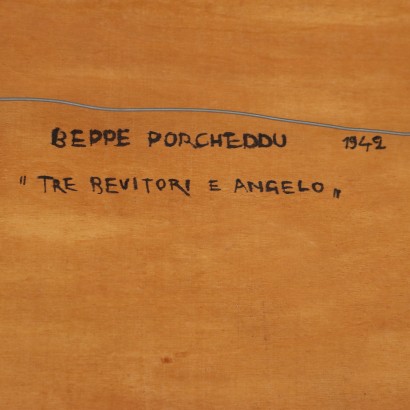 BEPPE PORCHEDDU 1942
" TRE BEVITORI E ANGELO „